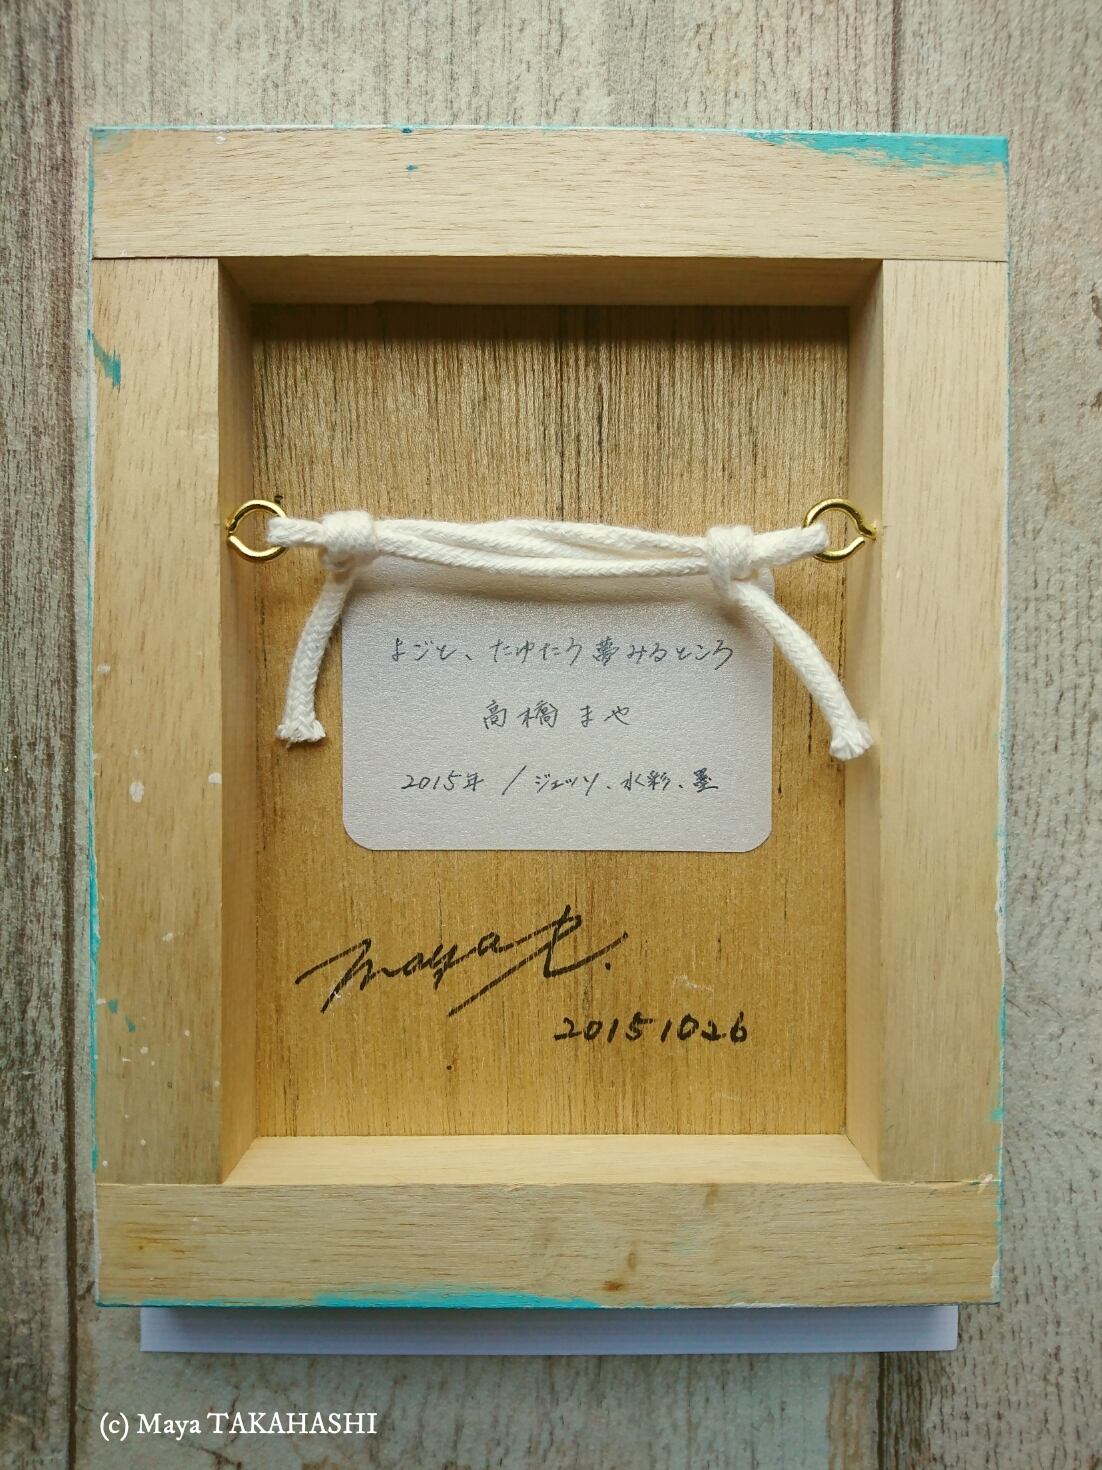 よごと、たゆたう夢みるところ
高橋 まや
2015年 / ジェッソ、水彩、墨
maya t.
20151026
(c) Maya TAKAHASHI